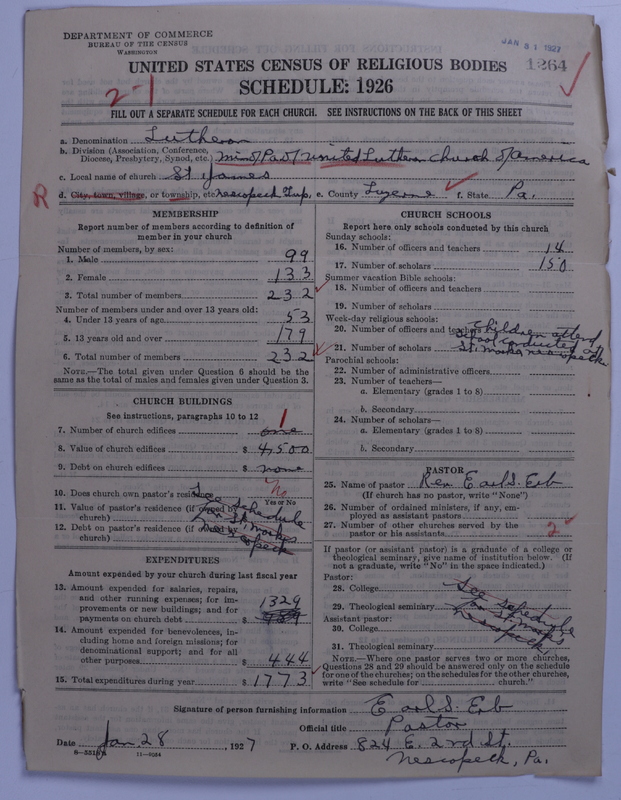 DEPARTMENT OF COMMERCE
BUREAU OF THE CENSUS
WASHINGTON
JAN 31 1927
1264
UNITED STATES CENSUS OF RELIGIOUS BODIES
SCHEDULE: 1926
2-1
FILL OUT A SEPARATE SCHEDULE FOR EACH CHURCH. SEE INSTRUCTIONS ON THE BACK OF THIS SHEET
a. Denomination Lutheran
b. Division (Association, Conference, Diocese, Presbytery, Synod, etc.) Min of Pa of United Luthern Church of America
c. Local name of church St. James
R
d. City, town, village, or township, etc. Nescopeck Twp., e. County Luzerne f. State Pa.
MEMBERSHIP
Report number of members according to definition of
member in your church
Number of members, by sex:
1. Male 99
2. Female 133
3. Total number of members 232
Number of members under and over 13 years old:
4. Under 13 years of age 53
5. 13 years old and over 179
6. Total number of members 232
NOTE.—The total given under Question 6 should be
same as the total of males and females given under Question 3.
CHURCH BUILDINGS
See instructions, paragraphs 10 to 12
7. Number of church edifices one 1
8. Value of church edifices $ 4,500
9. Debt on church edifices $ none
10. Does church own pastor's residence No
Yes or No
11. Value of pastor's residence (if owned by
church)
12. Debt on pastor's residence (if owned by
church)
See schedule
for St. Marks
Nescopeck
EXPENDITURES
Amount expended by your church during last fiscal year
13. Amount expended for salaries, repairs,
and other running expenses; for im-
provements or new buildings; and for
payments on church debt $ 1329
14. Amount expended for benevolences, in-
cluding home and foreign missions; for
denominational support; and for all
other purposes $ 444
15. Total expenditures during year $ 1773
CHURCH SCHOOLS
Report here only schools conducted by this church
Sunday schools:
16. Number of officers and teachers 14
17. Number of scholars 150
Summer vacation Bible schools:
18. Number of officers and teachers
19. Number of scholars
Week-day religious schools:
20. Number of officers and teachers
21. Number of scholars
Children attend
school conducted at
St. Marks Nescopeck
Parochial schools:
22. Number of administrative officers
23. Number of teachers—
a. Elementary (grades 1 to 8)
b. Secondary
24. Number of scholars—
a. Elementary (grades 1 to 8)
b. Secondary
PASTOR
25. Name of pastor Rev. Earl S. Erb
(If church has no pastor, write "None")
26. Number of ordained ministers, if any, em-
ployed as assistant pastors
27. Number of other churches served by the
pastor or his assistants 2
If pastor (or assistant pastor) is a graduate of a college or
theological seminary, give name of institution below. (If
not a graduate, write "No" in the space indicated.)
Pastor:
28. College
29. Theological seminary
See schedule
for St. Marks
Nescopeck
Assistant pastor:
30. College
31. Theological seminary
NOTE.—Where one pastor serves two or more churches,
Questions 28 and 29 should be answered only on the schedule
for one of the churches; on the schedules for the other churches,
write "See schedule for church."
Signature of person furnishing information Earl S. Erb
Official title Pastor
Date Jan. 28, 1927 P. O. Address 824 E. 2nd St.
Nescopeck, Pa.
11-9034